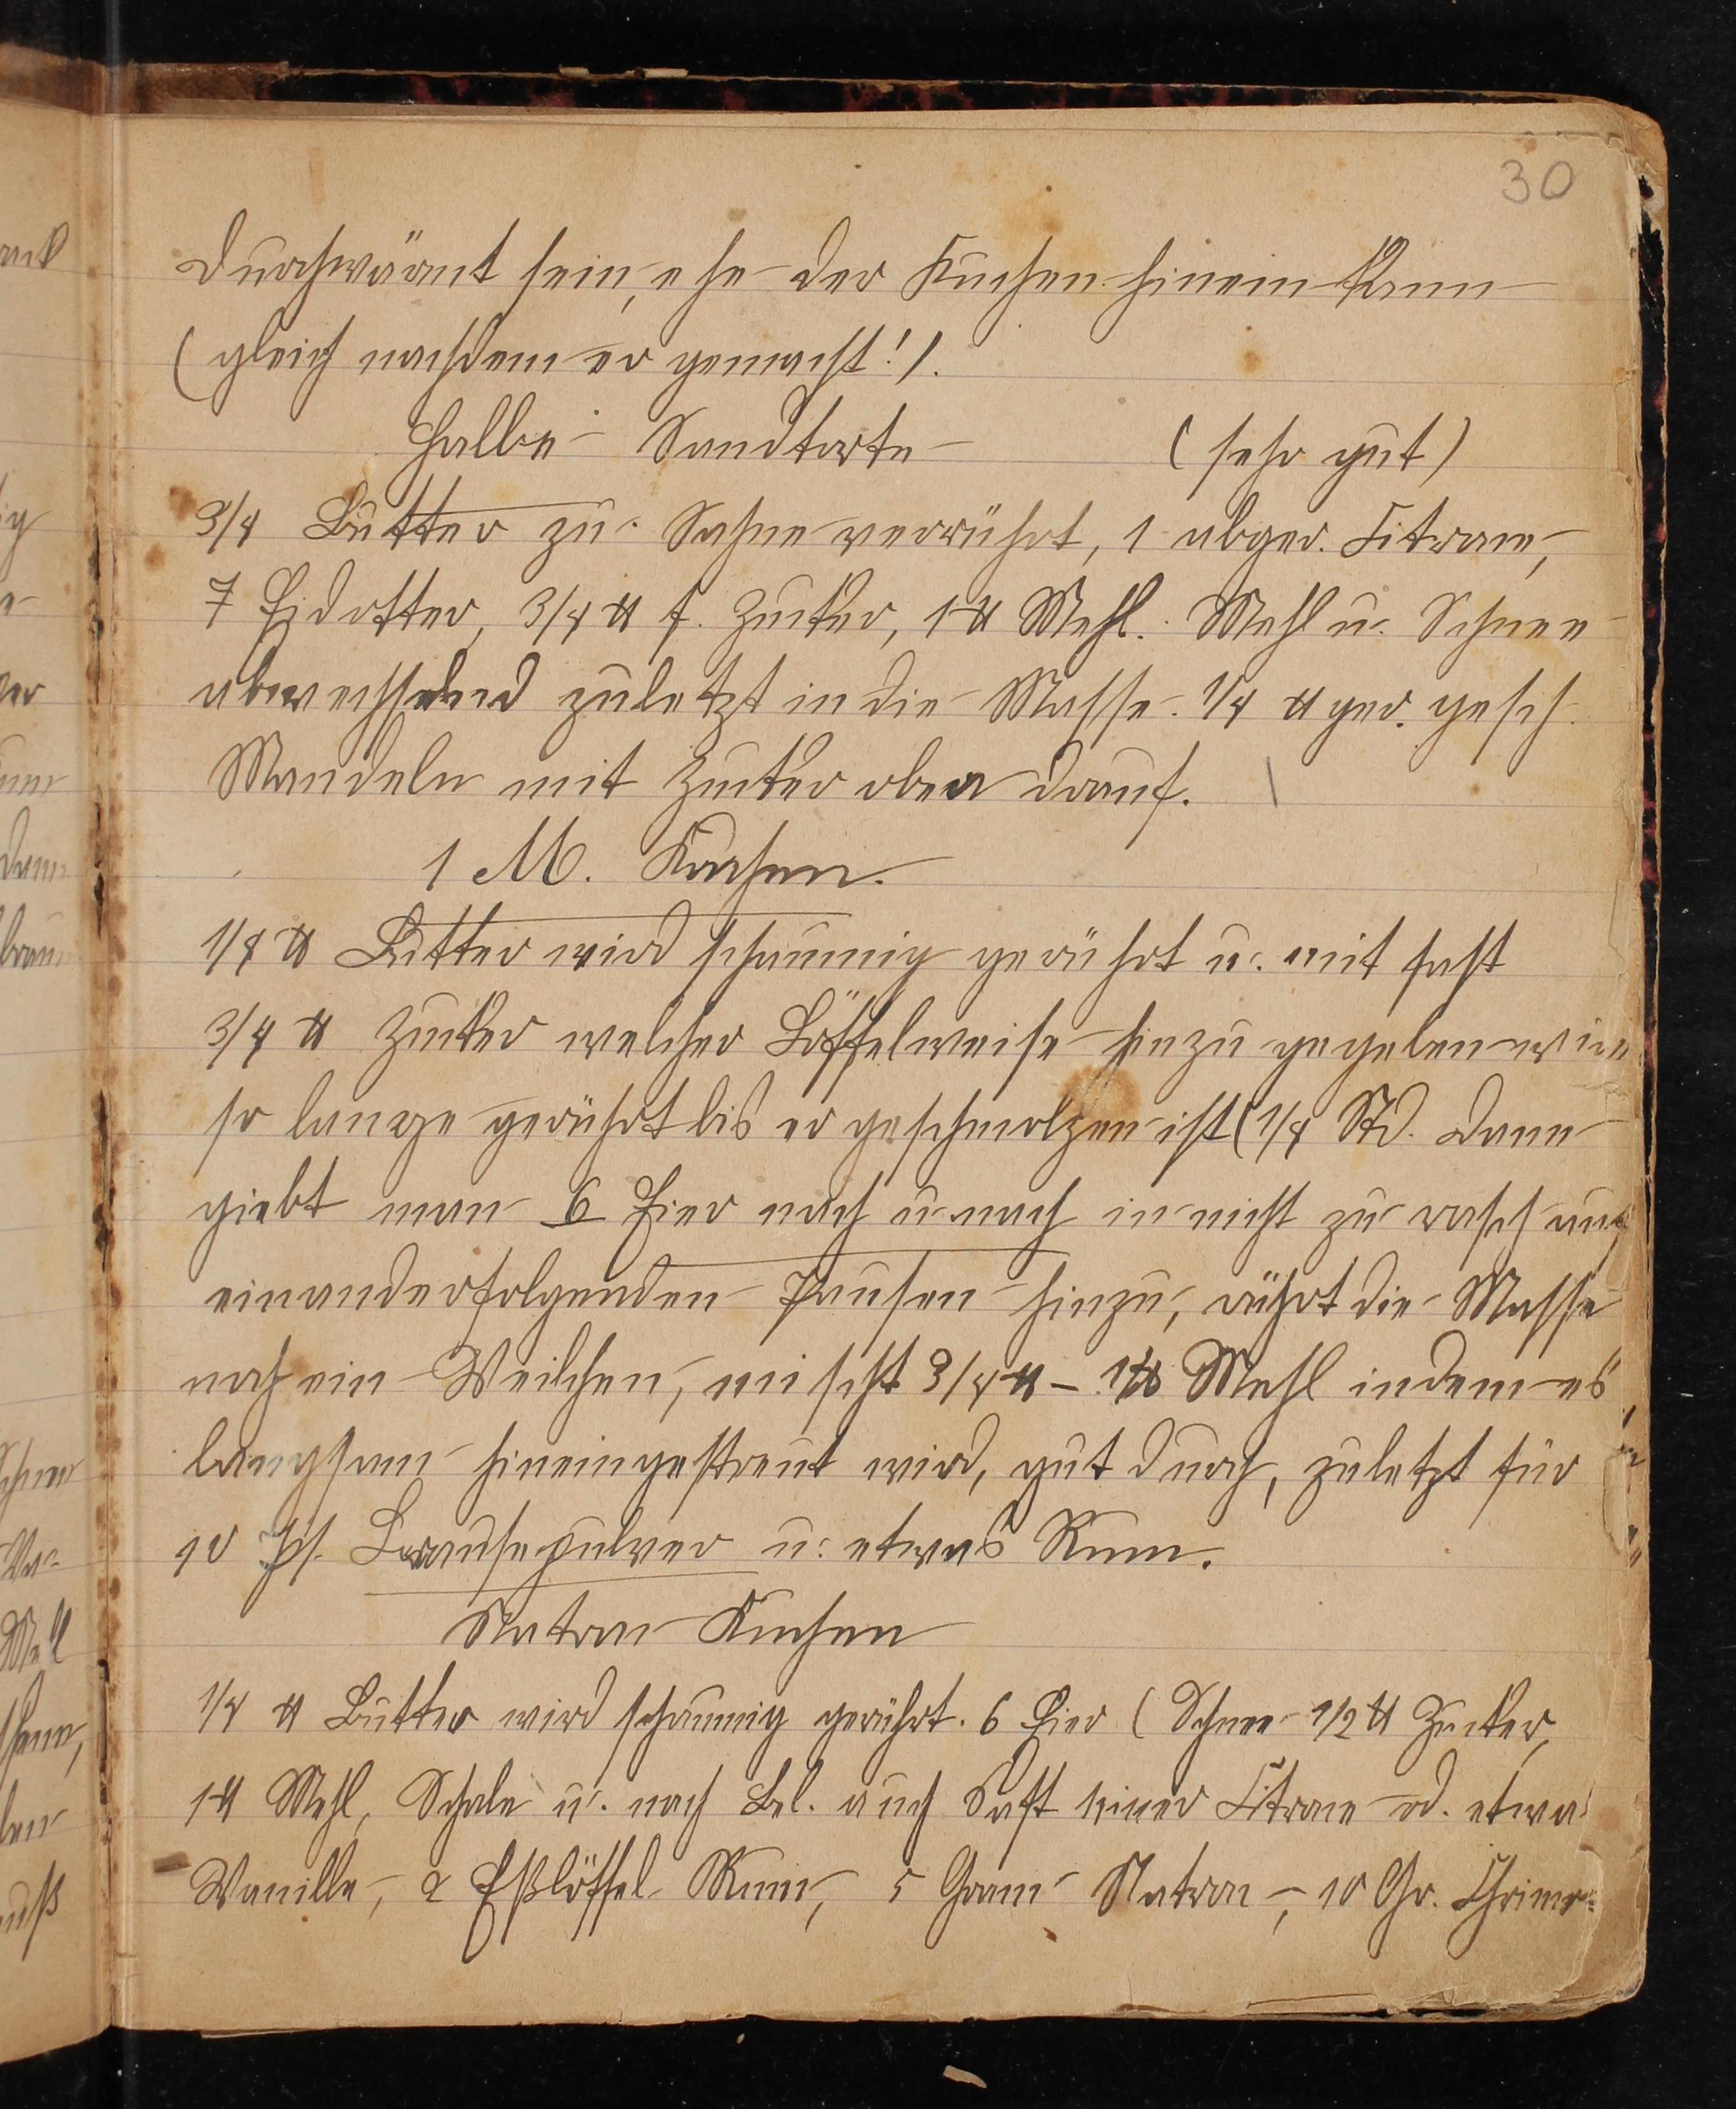 30
durchwärmt sein, ehe der Kuchen hinein kann
(gleich nachdem er gemacht!).
Halbe Sandtorte (sehr gut)
3/4 Butter zu Sahne verrührt, 1 abger. Citrone,
7 Eidotter, 3/4 ℔ f. Zucker, 1 ℔ Mehl. Mehl u. Schnee
abwechselnd zuletzt in die Masse. 1/4 ℔ ger. gesch.
Mandeln mit Zucker oben drauf.
1 M. Kuchen.
1/4 ℔ Butter wird schaumig gerührt u. mit fast
3/4 ℔ Zucker welcher Löffelweise hinzu gegeben wird
so lange gerührt bis er geschmolzen ist (1/4 Std. dann
giebt man 6 Eier nach u. nach in nicht zu rasch auf
einanderfolgenden Pausen hinzu, rührt die Masse
noch ein Weilchen, mischt 3/4 ℔ - 1 ℔ Mehl indem es
langsam hineingestreut wird, gut durch, zuletzt für
10 Pf. Brausepulver u. etwas Rum.
Natron Kuchen
1/4 ℔ Butter wird schaumig gerührt. 6 Eier (Schnee 1/2 ℔ Zucker,
1 ℔ Mehl, Schale u. nach Bel. auch Saft einer Citrone od. etwas
Vanille, 2 Eßlöffel Rum, 5 Gram Natron, 10 Gr.